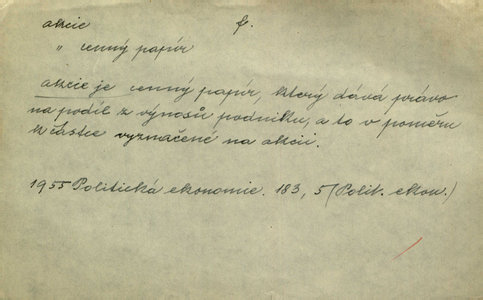 akcie f.
" cenný papír
akcie je cenný papír, který dává právo
na podíl z výnosů podniku, a to v poměru
k částce vyznačené na akcii.
1955 Politická ekonomie. 183, 5 (Polit. ekon.)